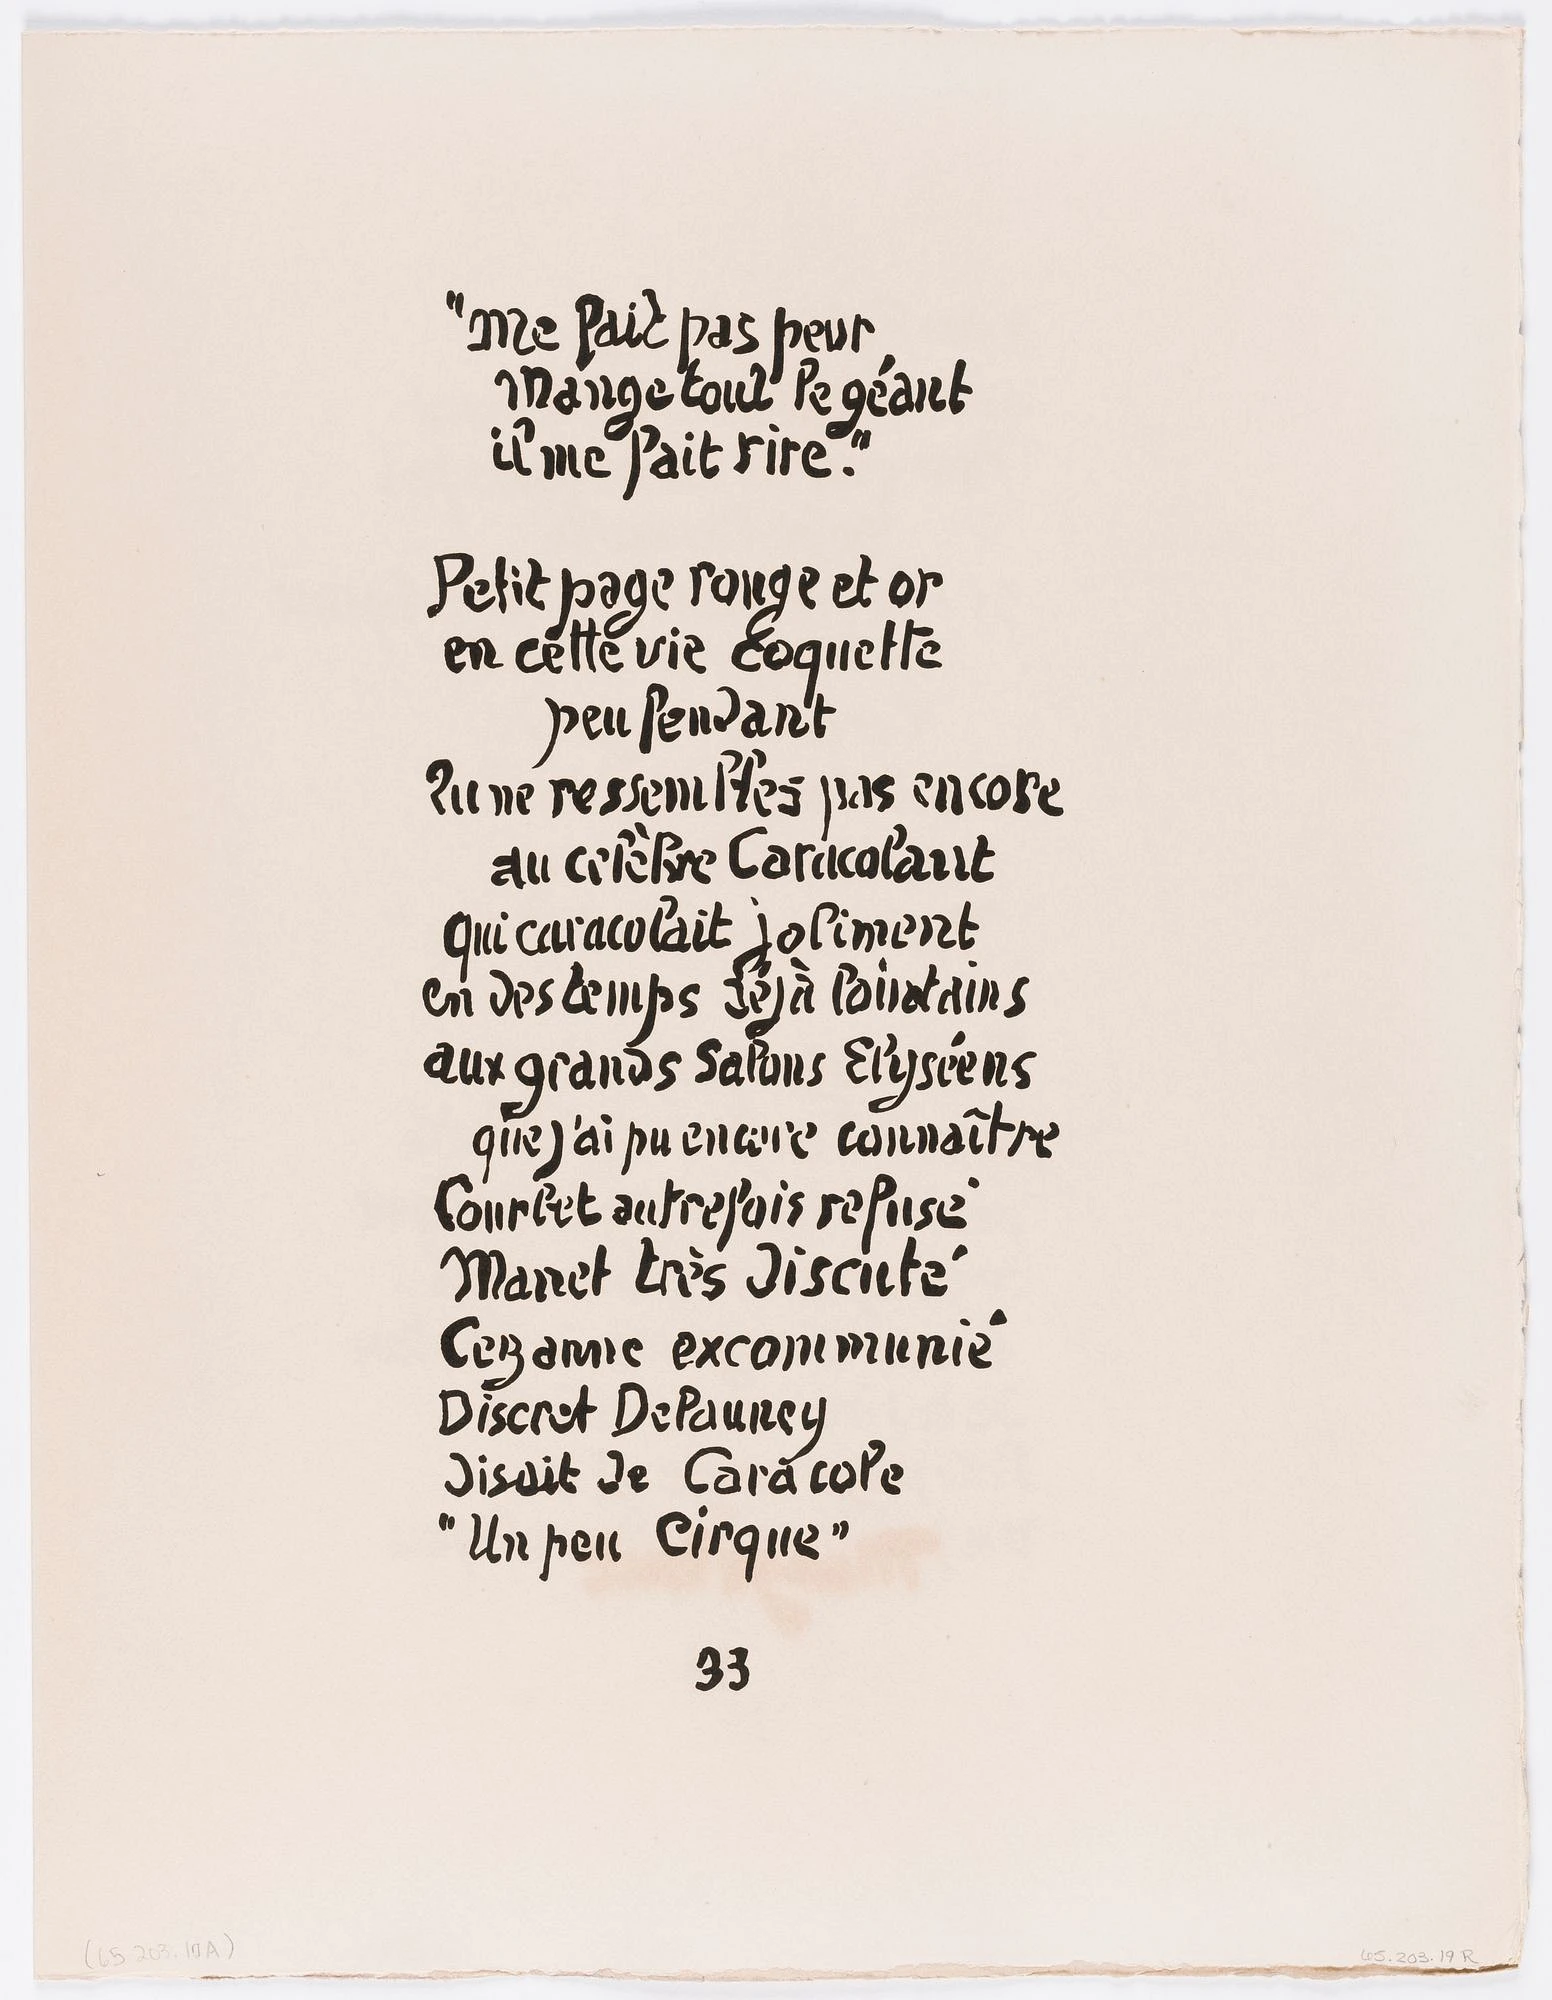 "Me fait pas peur
Mangetout le géant
il me fait rire."
Petit page rouge et or
en cette vie coquette
peu fendant
Tu ne ressembles pas encore
au célèbre Caracolant
qui caracolait joliment
en des temps déjà lointains
aux grands Salons Elyséens
que j'ai pu encore connaître
Courbet autrefois refusé
Manet très discuté
Cezanne excommunié
Discret Delauney
disait de Caracole
"Un peu Cirque"
33
(65.203.17A)
65.203.19 R